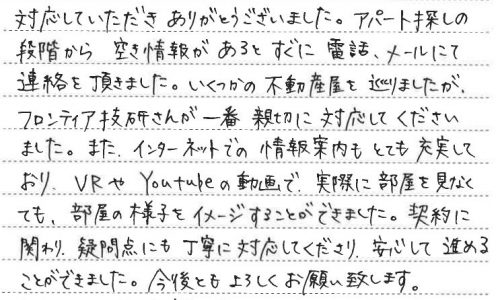 対応していただき ありがとうございました。アパート探しの
段階から 空き情報が あると すぐに 電話、メールにて
連絡を 頂きました。いくつかの 不動産屋を 巡りましたが、
フロンティア技研さんが 一番 親切に 対応して ください
ました。また、インターネットでの 情報案内も とても 充実して
おり、VRや Youtubeの動画で、実際に 部屋を見なく
ても、部屋の様子を イメージすることができました。契約に
関わり、疑問点にも 丁寧に 対応してくださり、安心して 進める
ことができました。今後とも よろしく お願い致します。